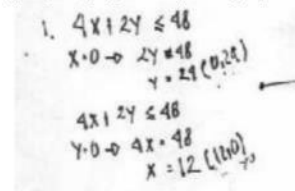 1. 4x + 2y ≤ 48
x=0 → 2y = 48
y = 24 (0,24)
4x + 2y ≤ 48
y=0 → 4x = 48
x = 12 (12,0)